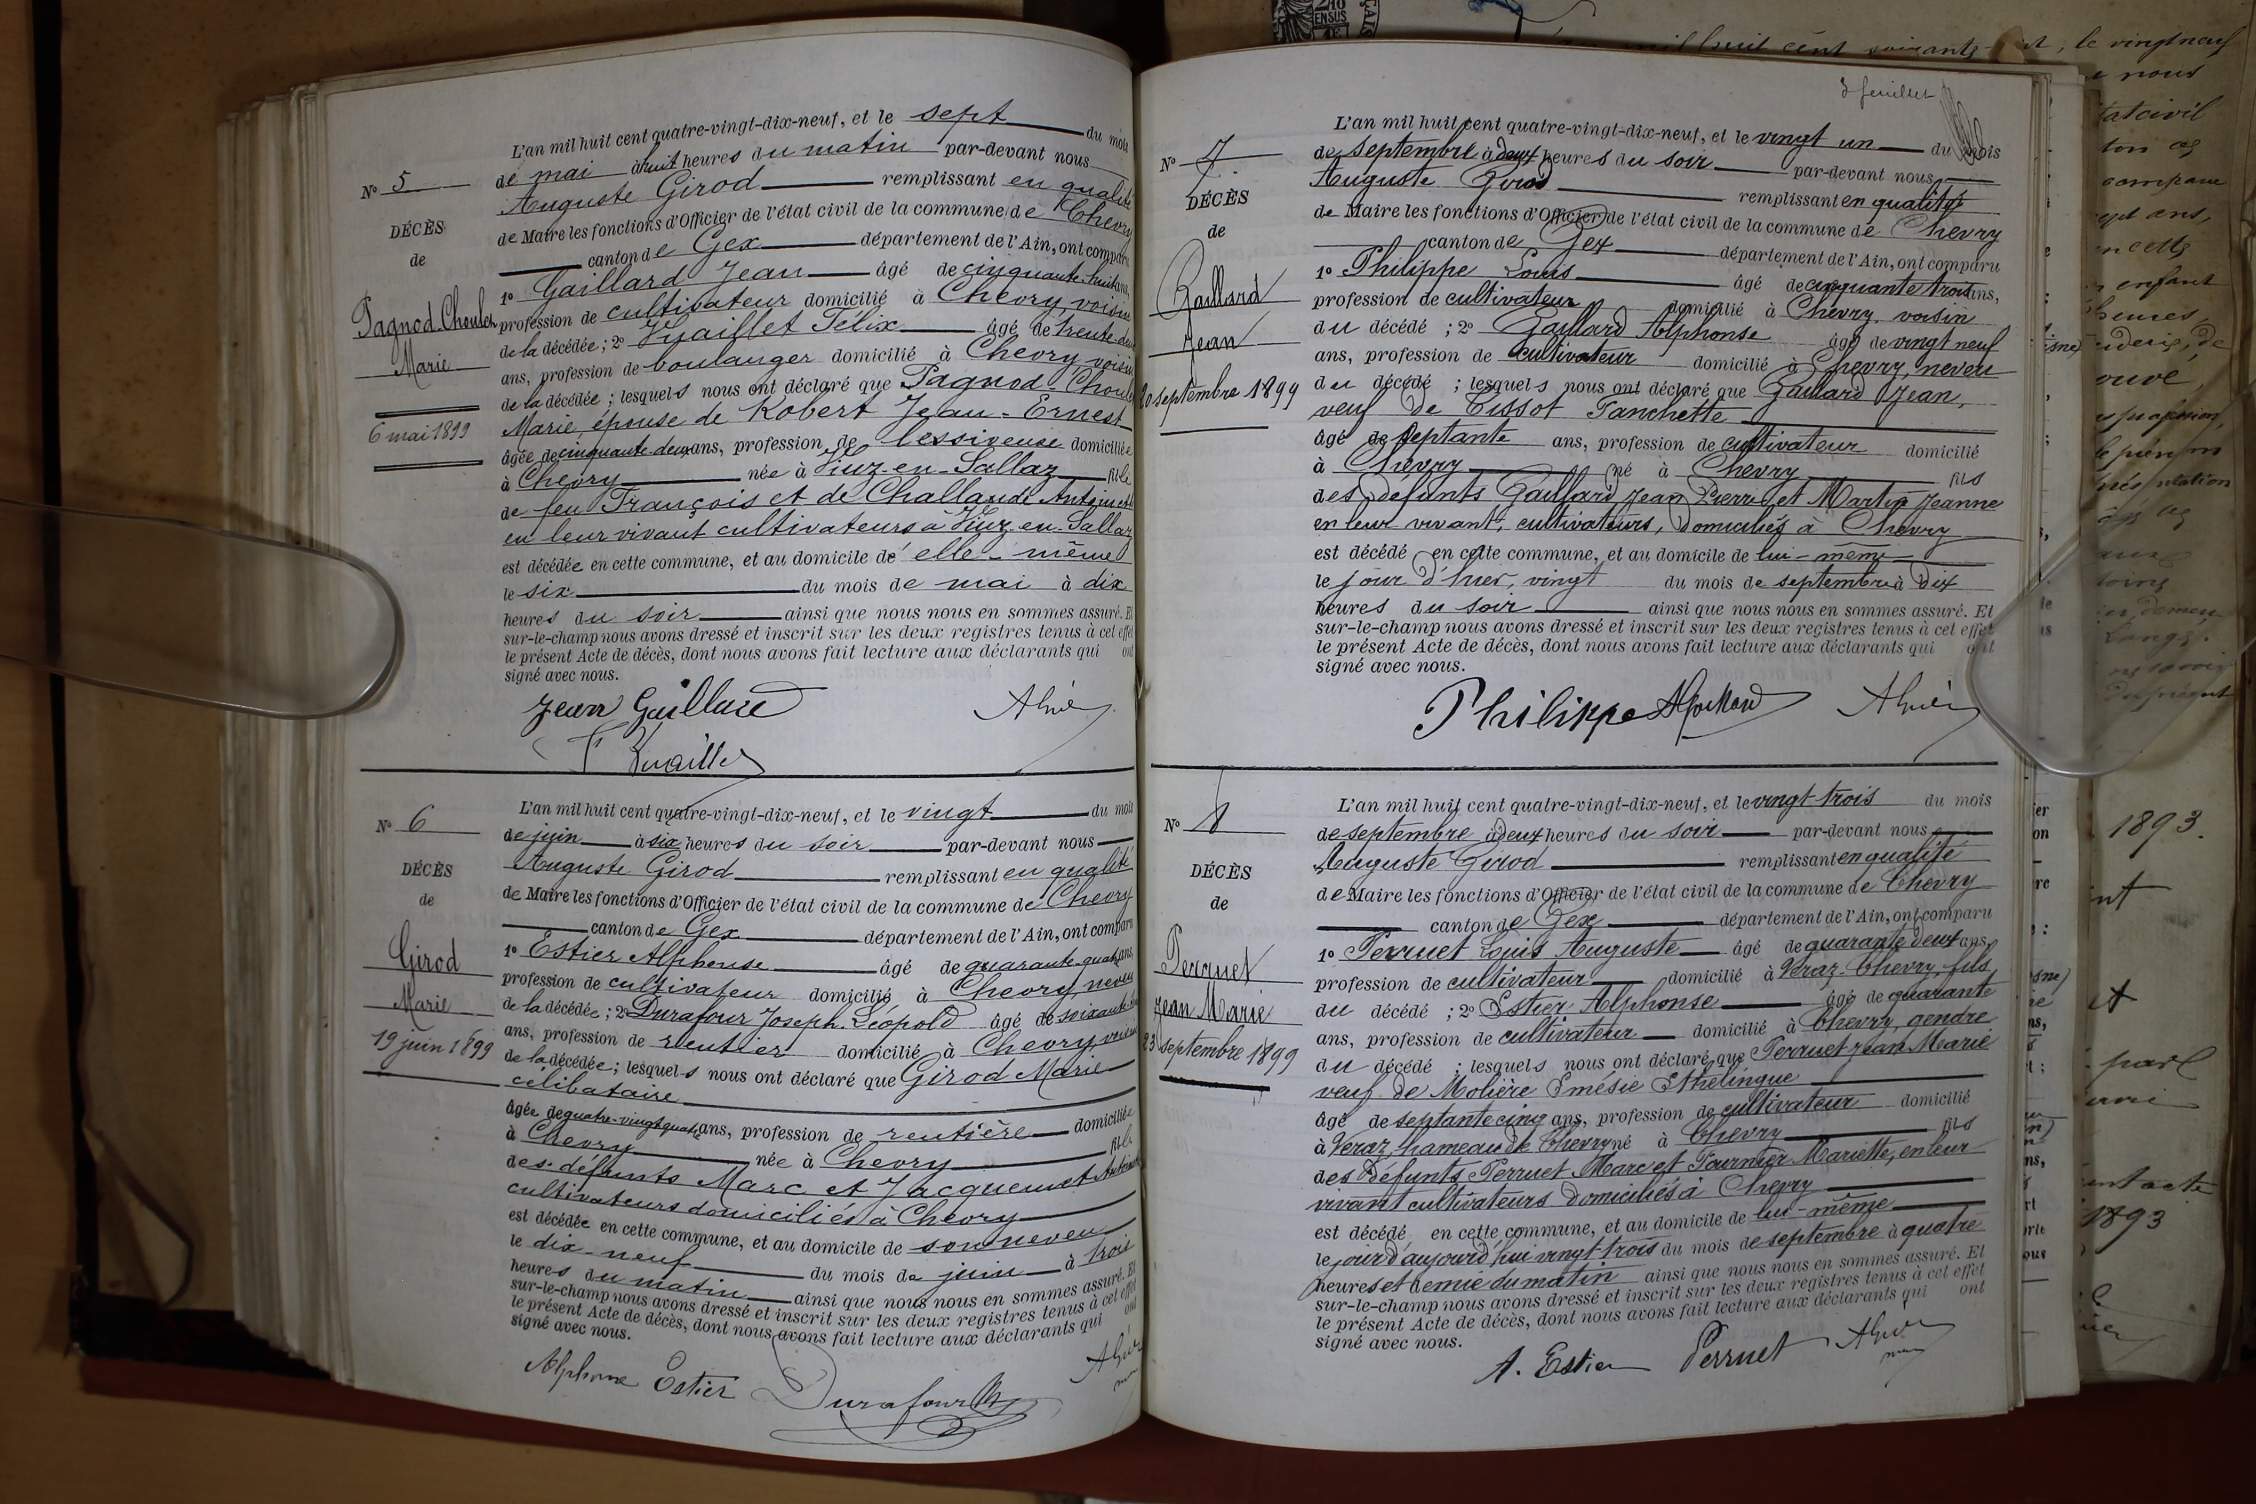 L'an mil huit cent quatre-vingt-dix-neuf, et le sept du mois
de mai à huit heures du matin par-devant nous
Auguste Girod remplissant en qualité
de Maire les fonctions d'Officier de l'état civil de la commune de Chevry
canton de Gex département de l'Ain, ont comparu
1º Gaillard Jean âgé de cinquante-huit ans,
profession de cultivateur domicilié à Chevry, voisin
de la décédée ; 2º Vuaillet Félix âgé de trente-deux
ans, profession de boulanger domicilié à Chevry, voisin
de la décédée ; lesquels nous ont déclaré que Pagnod-Choulex
Marie, épouse de Robert Jean-Ernest
âgée de cinquante-deux ans, profession de lessiveuse domiciliée
à Chevry née à Viuz-en-Sallaz fille
de feu François et de Challande Antoinette
en leur vivant cultivateurs à Viuz-en-Sallaz
est décédée en cette commune, et au domicile de elle-même
le six du mois de mai à dix
heures du soir ainsi que nous nous en sommes assuré. Et
sur-le-champ nous avons dressé et inscrit sur les deux registres tenus à cet effet
le présent Acte de décès, dont nous avons fait lecture aux déclarants qui ont
signé avec nous.
Nº 5
DÉCÈS
de
Pagnod-Choulex
Marie
6 mai 1899
Jean Gaillard
F Vuaillet
L'an mil huit cent quatre-vingt-dix-neuf, et le vingt du mois
de juin à six heures du soir par-devant nous
Auguste Girod remplissant en qualité
de Maire les fonctions d'Officier de l'état civil de la commune de Chevry
canton de Gex département de l'Ain, ont comparu
1º Estier Alphonse âgé de quarante-quatre ans,
profession de cultivateur domicilié à Chevry, neveu
de la décédée ; 2º Durafour Joseph-Léopold âgé de soixante
ans, profession de rentier domicilié à Chevry, voisin
de la décédée ; lesquels nous ont déclaré que Girod Marie
célibataire
âgée de quatre-vingt-quatre ans, profession de rentière domiciliée
à Chevry née à Chevry fille
des défunts Marc et Jacquemet
cultivateurs domiciliés à Chevry
est décédée en cette commune, et au domicile de son neveu
le dix-neuf du mois de juin à trois
heures du matin ainsi que nous nous en sommes assuré. Et
sur-le-champ nous avons dressé et inscrit sur les deux registres tenus à cet effet
le présent Acte de décès, dont nous avons fait lecture aux déclarants qui ont
signé avec nous.
Nº 6
DÉCÈS
de
Girod
Marie
19 juin 1899
Alphonse Estier Durafour
3 feuillet
L'an mil huit cent quatre-vingt-dix-neuf, et le vingt un du mois
de septembre à deux heures du soir par-devant nous
Auguste Girod remplissant en qualité
de Maire les fonctions d'Officier de l'état civil de la commune de Chevry
canton de Gex département de l'Ain, ont comparu
1º Philippe Louis âgé de cinquante trois ans,
profession de cultivateur domicilié à Chevry voisin
du décédé ; 2º Gaillard Alphonse âgé de vingt neuf
ans, profession de cultivateur domicilié à Chevry, neveu
du décédé ; lesquels nous ont déclaré que Gaillard Jean,
veuf de Tissot Fanchette
âgé de septante ans, profession de cultivateur domicilié
à Chevry né à Chevry fils
des défunts Gaillard Jean Pierre et Martin Jeanne
en leur vivant, cultivateurs, domiciliés à Chevry
est décédé en cette commune, et au domicile de lui-même
le jour d'hier, vingt du mois de septembre à dix
heures du soir ainsi que nous nous en sommes assuré. Et
sur-le-champ nous avons dressé et inscrit sur les deux registres tenus à cet effet
le présent Acte de décès, dont nous avons fait lecture aux déclarants qui ont
signé avec nous.
Nº 7
DÉCÈS
de
Gaillard
Jean
20 septembre 1899
Philippe A Gaillard
L'an mil huit cent quatre-vingt-dix-neuf, et le vingt-trois du mois
de septembre à deux heures du soir par-devant nous
Auguste Girod remplissant en qualité
de Maire les fonctions d'Officier de l'état civil de la commune de Chevry
canton de Gex département de l'Ain, ont comparu
1º Perruet Louis Auguste âgé de quarante deux ans,
profession de cultivateur domicilié à Veraz-Chevry, fils
du décédé ; 2º Estier Alphonse âgé de quarante
ans, profession de cultivateur domicilié à Chevry, gendre
du décédé ; lesquels nous ont déclaré que Perruet Jean Marie
veuf de Molière Emésie Ethelingue
âgé de septante cinq ans, profession de cultivateur domicilié
à Veraz, hameau de Chevry né à Chevry fils
des défunts Perruet Marc et Fournier Mariette, en leur
vivant cultivateurs domiciliés à Chevry
est décédé en cette commune, et au domicile de lui-même
le jour d'aujourd'hui vingt-trois du mois de septembre à quatre
heures et demie du matin ainsi que nous nous en sommes assuré. Et
sur-le-champ nous avons dressé et inscrit sur les deux registres tenus à cet effet
le présent Acte de décès, dont nous avons fait lecture aux déclarants qui ont
signé avec nous.
Nº 8
DÉCÈS
de
Perruet
Jean Marie
23 septembre 1899
A. Estier Perruet
le vingt neuf
nous
1893.
1893